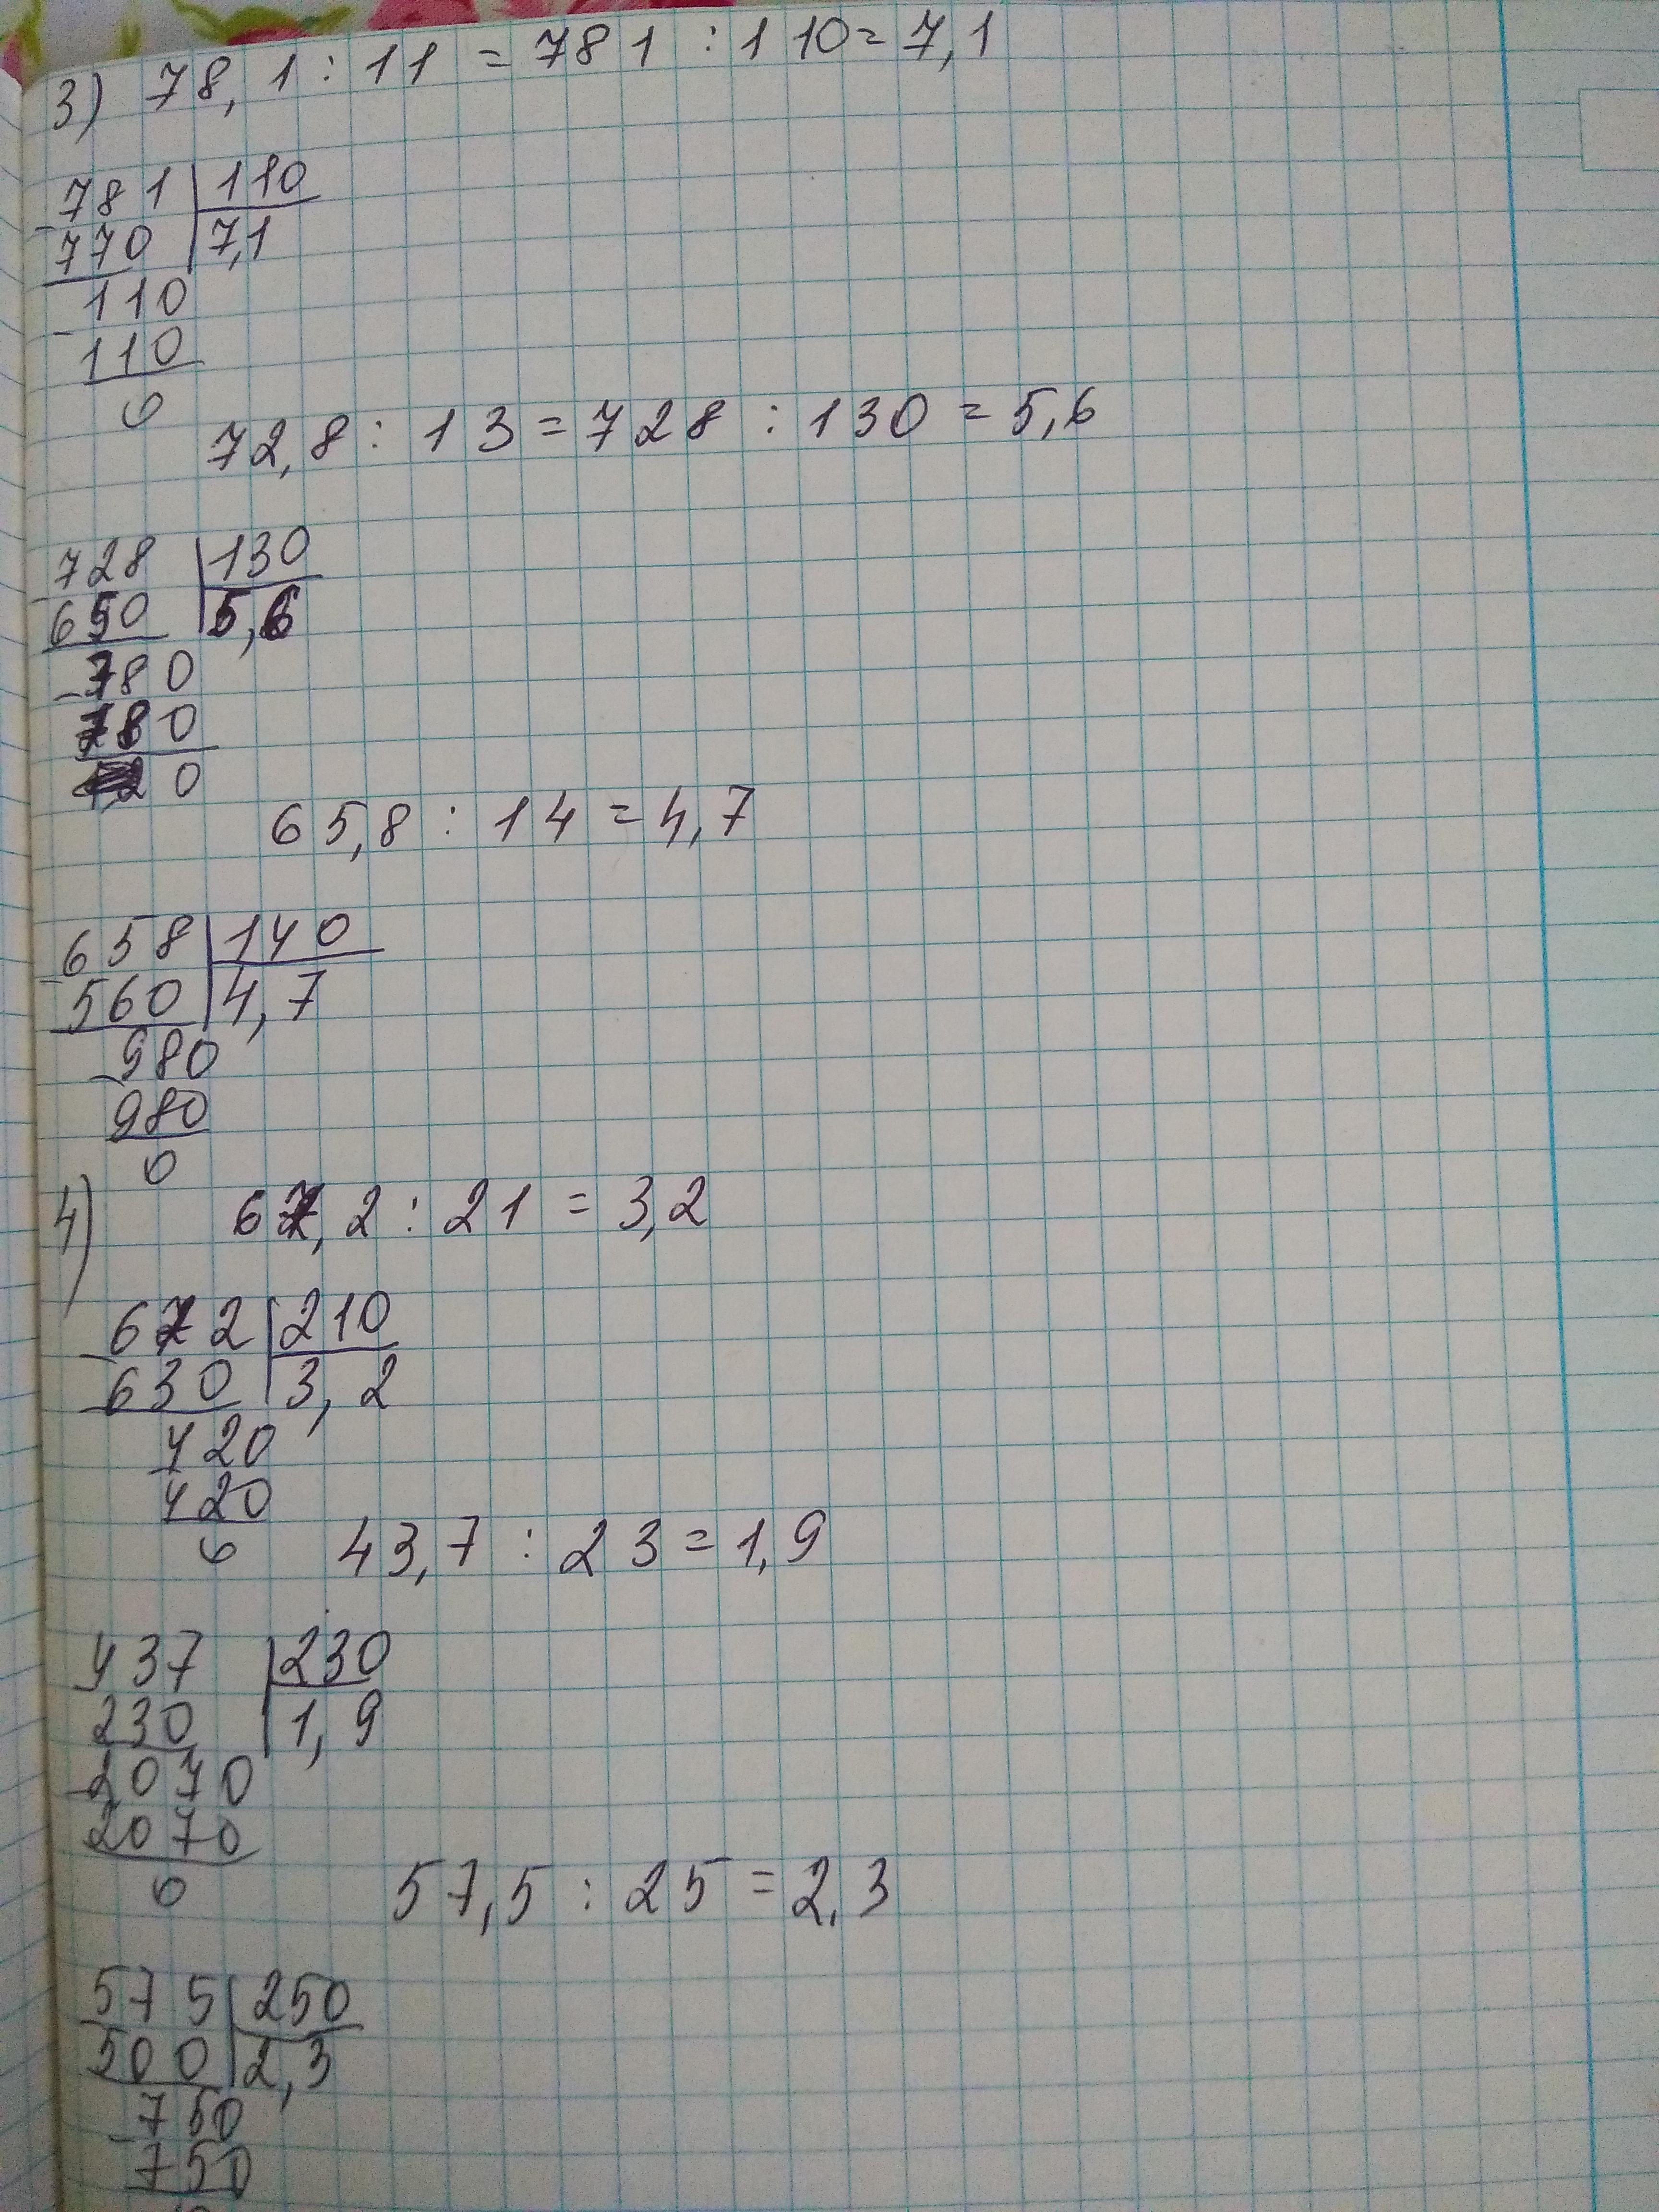 3) 78,1 : 11 = 781 : 110 = 7,1
781 110
770 7,1
110
110
0
72,8 : 13 = 728 : 130 = 5,6
728 130
650 5,6
780
780
0
65,8 : 14 = 4,7
658 140
560 4,7
980
980
0
4) 67,2 : 21 = 3,2
672 210
630 3,2
420
420
0
43,7 : 23 = 1,9
437 230
230 1,9
2070
2070
0
57,5 : 25 = 2,3
575 250
500 2,3
750
750